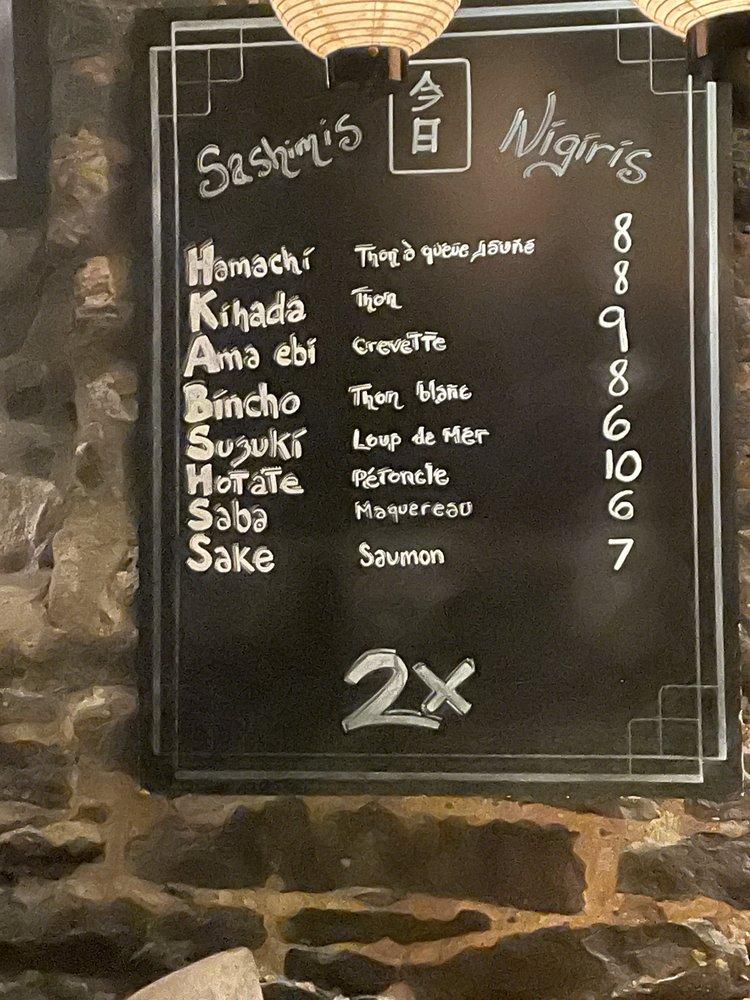 今日
Sashimis Nigiris
Hamachi Thon à queue jaune 8
Kihada Thon 8
Ama ebi Crevette 9
Bincho Thon blanc 8
Suzuki Loup de Mer 6
Hotate Pétoncle 10
Saba Maquereau 6
Sake Saumon 7
2x